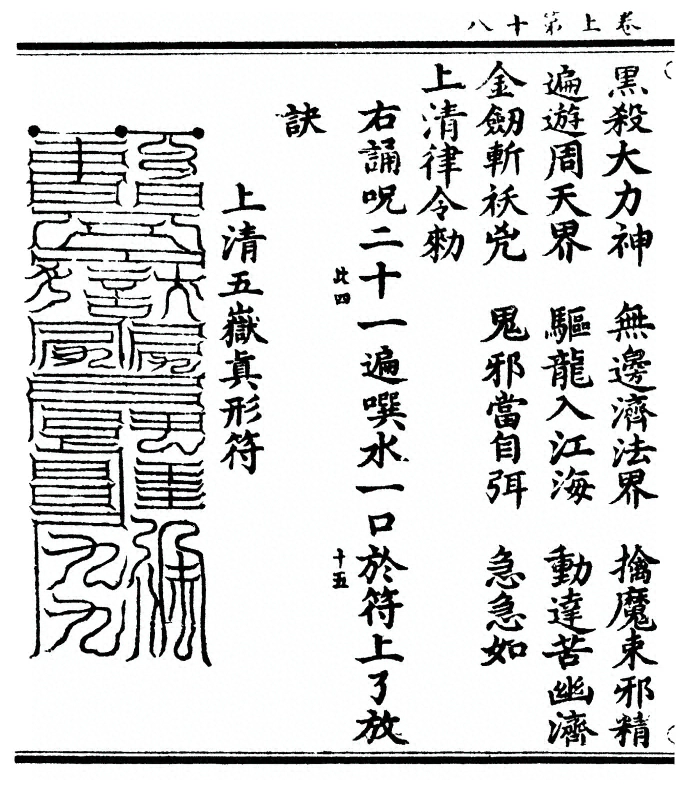 卷上第十八
黑殺大力神　無邊濟法界　擒魔束邪精
遍遊周天界　驅龍入江海　動達苦幽濟
金劒斬祅兇　鬼邪當自弭　急急如
上清律令勑
右誦呪二十一遍噀水一口於符上了放
北四
十五
訣
上清五嶽真形符